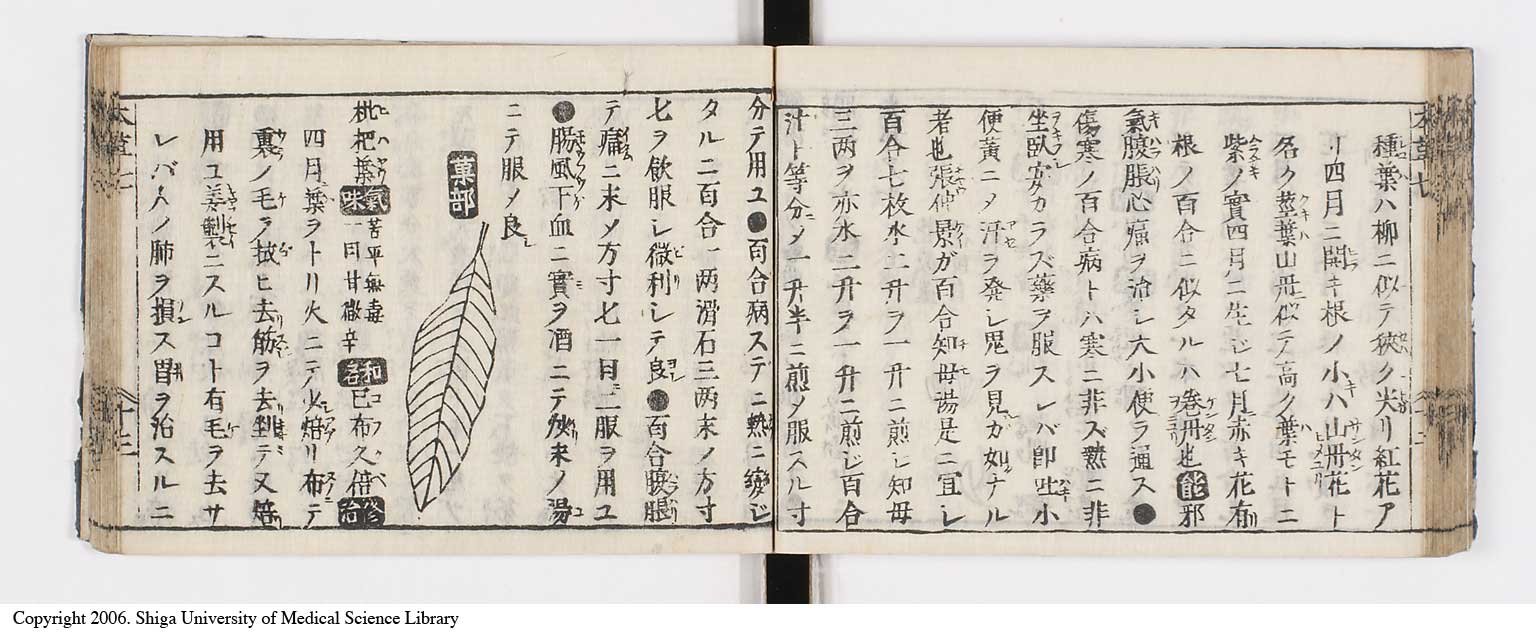 種葉ハ柳ニ似テ狹ク尖リ紅花ア
リ四月ニ開キ根ノ小ハ山丹花ト
名ク莖葉山丹ニ似テ高ク葉モトニ
紫ノ實四月ニ生じ七月赤キ花有
根ノ百合ニ似タルハ巻丹也 能 邪
氣腹脹心痛ヲ治シ大小便ヲ通ス●
傷寒ノ百合病トハ寒ニ非ズ熱ニ非
坐臥安カラズ藥ヲ服スレバ即吐小
便黄ニメ汗ヲ発シ鬼ヲ見ガ如ナル
者也張仲景ガ百合知母湯是ニ宜シ
百合七枚水二升ヲ一升ニ煎シ知母
三两ヲ亦水二升ヲ一升ニ煎じ百合
汁ト等分メ一升半ニ煎メ服スル寸
分テ用ユ●百合病スデニ熱ニ變じ
タルニ百合一两滑石三两末メ方寸
七ヲ飲服シ微利シテ良●百合腹脹
テ痛ニ末メ方寸七一日二服ヲ用ユ
●腸風下血ニ實ヲ酒ニテ炒末メ湯
ニテ服メ良
菓部
枇杷葉 氣味 苦平無毒一曰甘微辛 和名 已布久倍 修治
四月葉ヲトリ火ニテ火焙リ布テ
裏ノ毛ヲ拭ヒ去筋ヲ去剉テ又焙
用ユ姜製ニスルコト有毛ヲ去サ
レバ人ノ肺ヲ損ス胃ヲ治スルニ
Copyright 2006. Shiga University of Medical Science Library